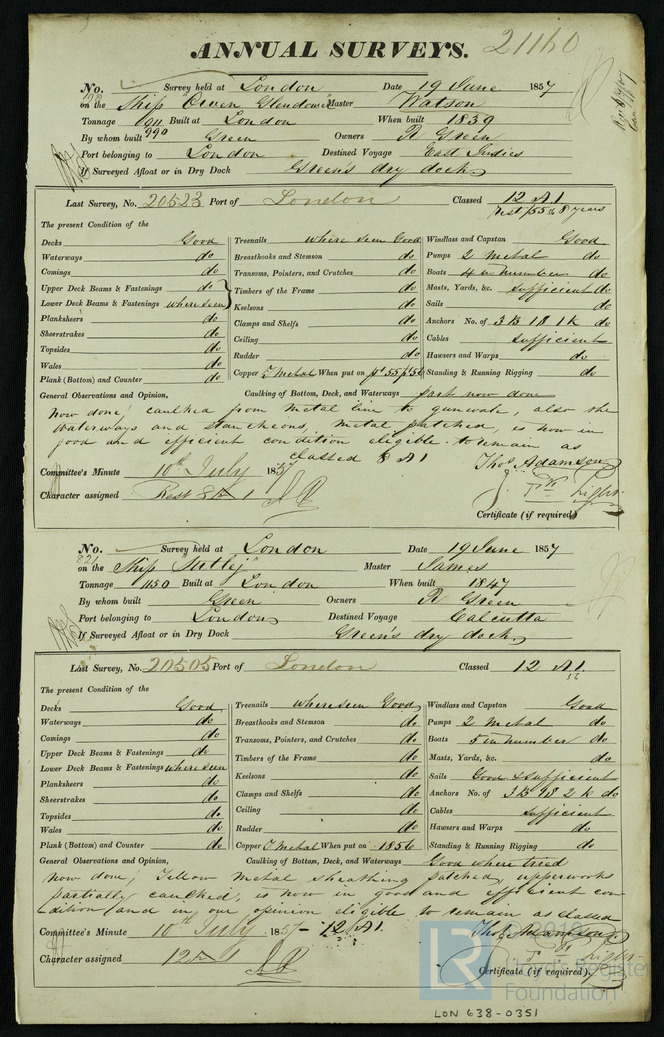 ANNUAL SURVEYS. 21160
No. Survey held at London Date 19 June 1857
on the Ship "Owen Glendower" Master Watson
Tonnage Built at London When built 1839
By whom built 990 Green Owners R Green
Port belonging to London Destined Voyage East Indies
If Surveyed Afloat or in Dry Dock Green's dry dock
Last Survey, No. 20523 Port of London Classed 12 A1
Rest /55 & 8 years
The present Condition of the
Decks Good Treenails where seen Good Windlass and Capstan Good
Waterways do Breasthooks and Stemson do Pumps 2 metal do
Comings do Transoms, Pointers, and Crutches do Boats 4 in number do
Upper Deck Beams & Fastenings do Timbers of the Frame do Masts, Yards, &c. sufficient do
Lower Deck Beams & Fastenings where seen Keelsons do Sails do
Planksheers do Clamps and Shelfs do Anchors No. of 3 B 1 S 1 K do
Sheerstrakes do Ceiling do Cables sufficient
Topsides do Rudder do Hawsers and Warps do
Wales do Copper Y Metal When put on pt 55 pt 56 Standing & Running Rigging do
Plank (Bottom) and Counter do
General Observations and Opinion, Caulking of Bottom, Deck, and Waterways part now done
now done, caulked from metal line to gunwale, also the
waterways and stancheons, metal patched, is now in
good and efficient condition eligible to remain as
classed 8 A1
Committee's Minute 10th July 1857 Thos Adamson
Character assigned Rest 8 A 1
Certificate (if required)
No. Survey held at London Date 19 June 1857
821 on the Ship "Sutlej" Master James
Tonnage 1150 Built at London When built 1847
By whom built Green Owners R Green
Port belonging to London Destined Voyage Calcutta
If Surveyed Afloat or in Dry Dock Green's dry dock
Last Survey, No. 20505 Port of London Classed 12 A1
56
The present Condition of the
Decks Good Treenails where seen Good Windlass and Capstan Good
Waterways do Breasthooks and Stemson do Pumps 2 Metal do
Comings do Transoms, Pointers, and Crutches do Boats 5 in number do
Upper Deck Beams & Fastenings do Timbers of the Frame do Masts, Yards, &c. do
Lower Deck Beams & Fastenings where seen Keelsons do Sails Good & sufficient
Planksheers do Clamps and Shelfs do Anchors No. of 3 B 1 S 2 K do
Sheerstrakes do Ceiling do Cables sufficient
Topsides do Rudder do Hawsers and Warps do
Wales do Copper Y Metal When put on 1856 Standing & Running Rigging do
Plank (Bottom) and Counter do
General Observations and Opinion, Caulking of Bottom, Deck, and Waterways Good where tried
now done, Yellow metal sheathing patched, upperworks
partially caulked, is now in good and efficient con-
dition, and in our opinion eligible to remain as classed
Committee's Minute 10th July 1857 12 A1. Thos Adamson
Character assigned 12 A 1
Certificate (if required).
LR © 2019 Lloyd's Register Foundation
LON 638-0351